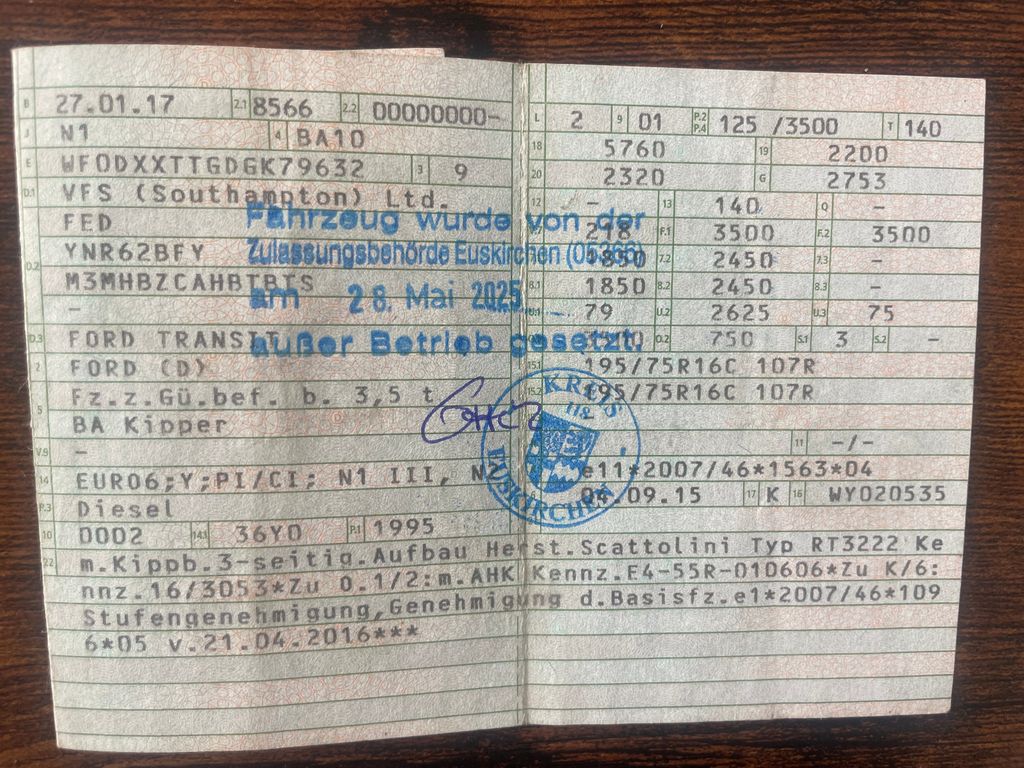 B 27.01.17 2.1 8566 2.2 00000000-
J N1 4 BA10
E WF0DXXTTGDGK79632 3 9
D.1 VFS (Southampton) Ltd.
FED
D.2 YNR62BFY
M3MHBZCAHBTBTS
-
D.3 FORD TRANSIT
2 FORD (D)
5 Fz.z.Gü.bef. b. 3,5 t
BA Kipper
V.9 -
14 EURO6;Y;PI/CI; N1 III, N2
P.3 Diesel
10 0002 14.1 36Y0 P.1 1995
L 2 9 01 P.2 P.4 125 /3500 T 140
18 5760 19 2200
20 2320 G 2753
12 - 13 140 Q -
218 F.1 3500 F.2 3500
1850 7.2 2450 7.3 -
8.1 1850 8.2 2450 8.3 -
U.1 79 U.2 2625 U.3 75
O.2 750 S.1 3 S.2 -
15.1 195/75R16C 107R
15.2 195/75R16C 107R
11 -/-
e11*2007/46*1563*04
04.09.15 17 K 16 WY020535
22 m.Kippb.3-seitig.Aufbau Herst.Scattolini Typ RT3222 Ke
nnz.16/3053*Zu O.1/2:m.AHK Kennz.E4-55R-010606*Zu K/6:
Stufengenehmigung,Genehmigung d.Basisfz.e1*2007/46*109
6*05 v.21.04.2016***
Fahrzeug wurde von der
Zulassungsbehörde Euskirchen (05366)
am 28. Mai 2025
außer Betrieb gesetzt.
KREIS
112
EUSKIRCHEN